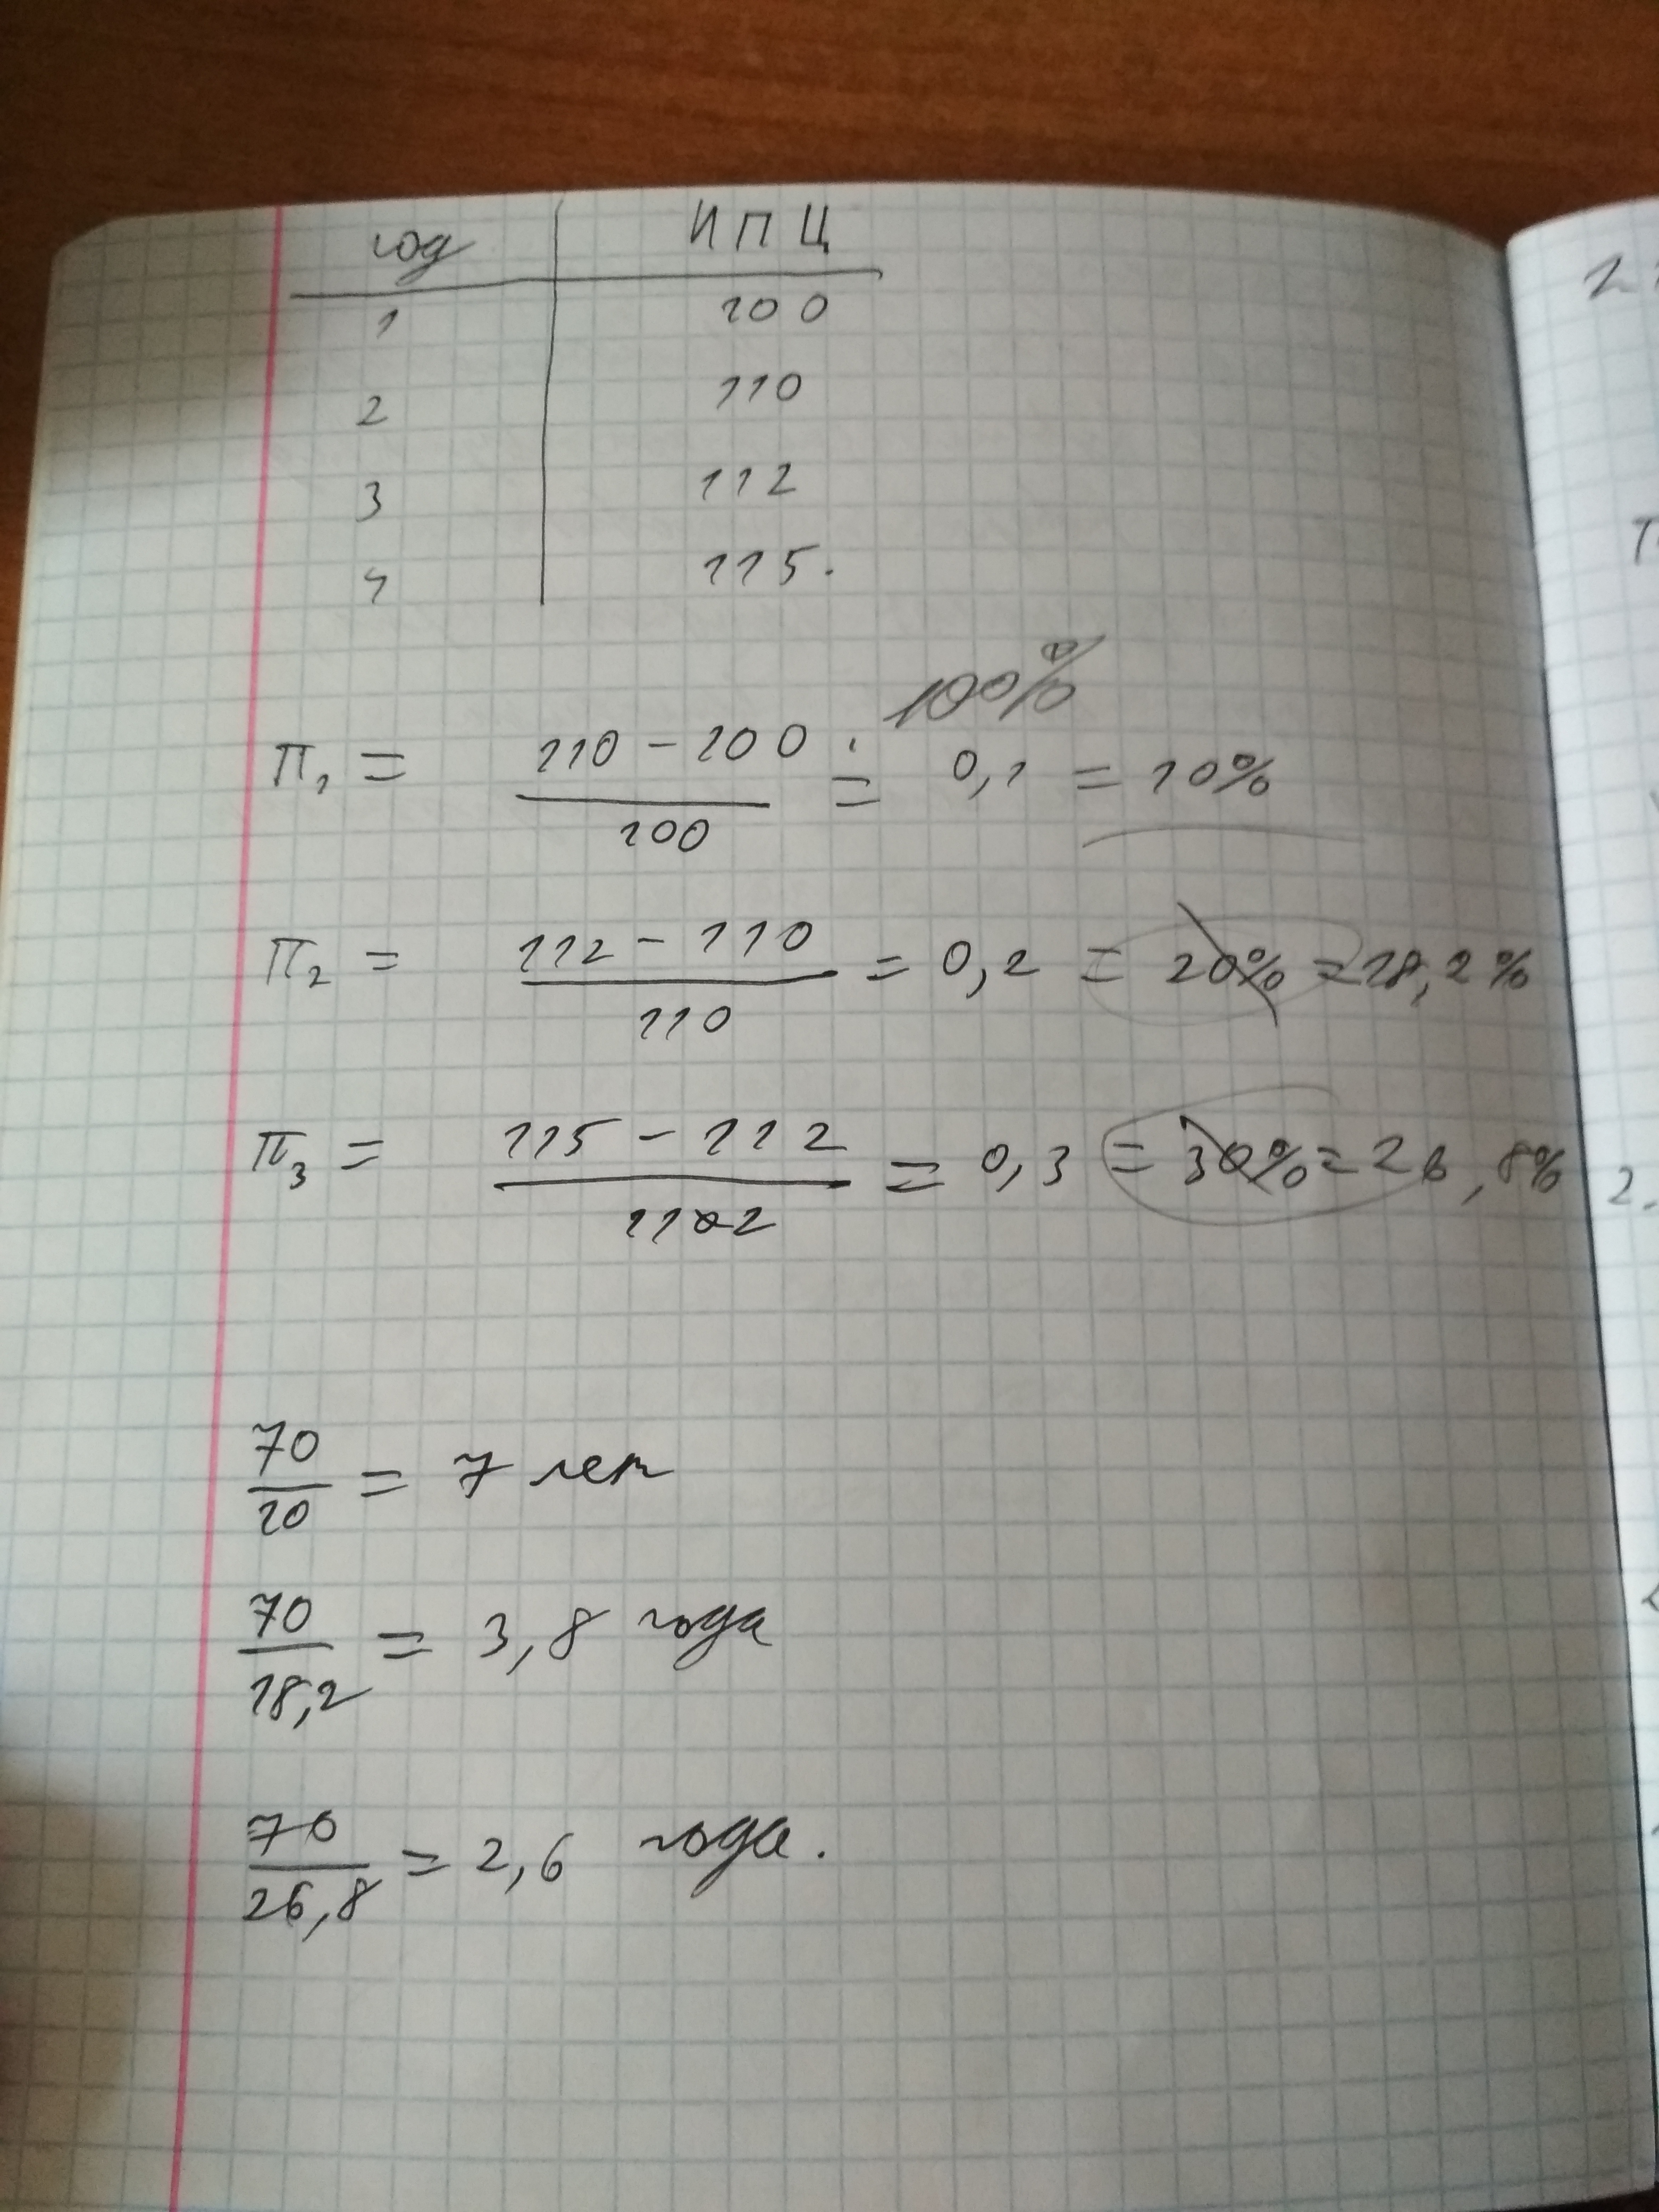 год ИПЦ
1 100
2 110
3 112
4 115.
π₁ = (110 - 100)/100 · 100% = 0,1 = 10%
π₂ = (112 - 110)/110 = 0,2 = 20% = 18,2%
π₃ = (115 - 112)/112 = 0,3 = 30% = 26,8%
70/10 = 7 лет
70/18,2 = 3,8 года
70/26,8 = 2,6 года.